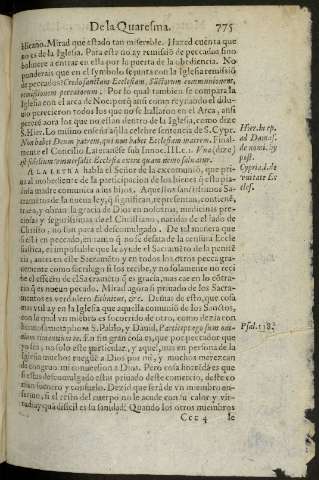 De la Quaresma. 775
blicano. Mirad que estado tan miserable. Hazed cuenta que
no es de la Iglesia. Para este no ay remissiō de peccados sino
boluerse a entrar en ella por la puerta de la obediencia. No
ponderais que en el symbolo se junta con la Iglesia remissiō
de peccados? Credo sanctam Ecclesiam, Sāctorum communionem,
remissionem peccatorum. Por lo qual tambien se compara la
Iglesia con el arca de Noe: porq̃ ansi como reynando el dilu-
uio perecieron todos los que no se hallaron en el Arca, ansi
perecē aora los que no estan dentro de la Iglesia, como dize
S. Hier. Lo mismo enseña aq̃lla celebre sentencia de S. Cypr.
Non habet Deum patrem, qui non habet Ecclesiam matrem. Final-
mente el Concilio Lateranēse sub Innoc. III. c. 1. Vna (dize)
est fidelium vniuersalis Ecclesia extra quam nemo saluatur.
Hier. in ep.
ad Damas.
de nomi. hy
post.
Cypria. l. de
vnitate Ec
cles.
A LA LETRA habla el Señor de la excomunion, que pri-
ua al inobediente de la participacion de los bienes q̃ esta pia-
dosa madre comunica a sus hijos. Aquestos sanctissimos Sa-
cramentos de la nueua ley, q̃ significan, representan, contienē,
traen, y obran la gracia de Dios en nosotros, medicinas pre-
ciosas y segurissimas de el Christiano, nacidas de el lado de
Christo, no son para el descomulgado. De tal manera que
si està en peccado, en tanto q̃ no se desata de la censura Eccle
siastica, es impossible que le ayude el Sacramēto de la peniten
cia, antes en esse Sacramēto y en todos los otros pecca gra-
uemente como sacrilego si los recibe, y no solamente no reci
be el effecto de el Sacramēto q̃ es gracia, mas cae en lo contra-
rio q̃ es nueuo pecado. Mirad agora si priuado de los Sacra-
mentos es verdadero Ethnicus, &c. Demas de esto, que cosa
mas vtil ay en la Iglesia que aquella comuniō de los Sanctos,
con la qual vn miēbro es socorrido de otro, como dezia con
hermosa metaphora S. Pablo, y Dauid, Particeps ego sum om-
nium timentium te. En fin gran cosa es, que por peccador que
yo sea, no solo este particular, y aquel, mas en persona de la
Iglesia muchos ruegue a Dios por mi, y muchos merezcan
de congruo mi conuersion a Dios. Pero cosa horrida es que
si estas descomulgado estas priuado deste comercio, deste co
mun socorro y consuelo. Dezid que serà de vn miembro en-
fermo, si el resto del cuerpo no le acude con su calor y vir-
tud: ay quā dificil es su sanidad! Quando los otros miembros
Psal. 118.
Ccc 4 se